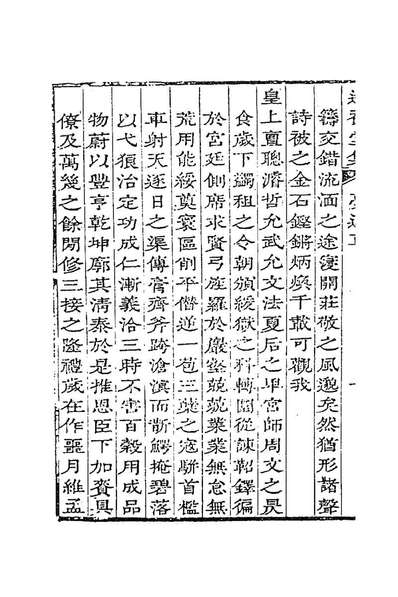 籌交錯流湎之途雙關莊敬之風邈矣然猶形諸聲
詩被之金石鏗鏘炳燠千載可觀我
皇上亶聰濬哲允武允文法夏后之卑宮師周文之昃
食歲下蠲租之令朝頒緩獄之科轉圜從諫鞀鐸徧
於宮廷側席求賢弓旌羅於巖壑兢兢業業無怠無
荒用能綏奠寰區削平僭逆一苞三蘖之寇駢首檻
車射天逐日之渠傳膏齊斧跨滄溟而斮鰐掩碧落
以弋狼治定功成仁漸義洽三時不害百穀用成品
物蔚以豐亨乾坤廓其清泰於是推恩臣下加賚具
僚及萬幾之餘閒修三接之隆禮歲在作噩月維孟